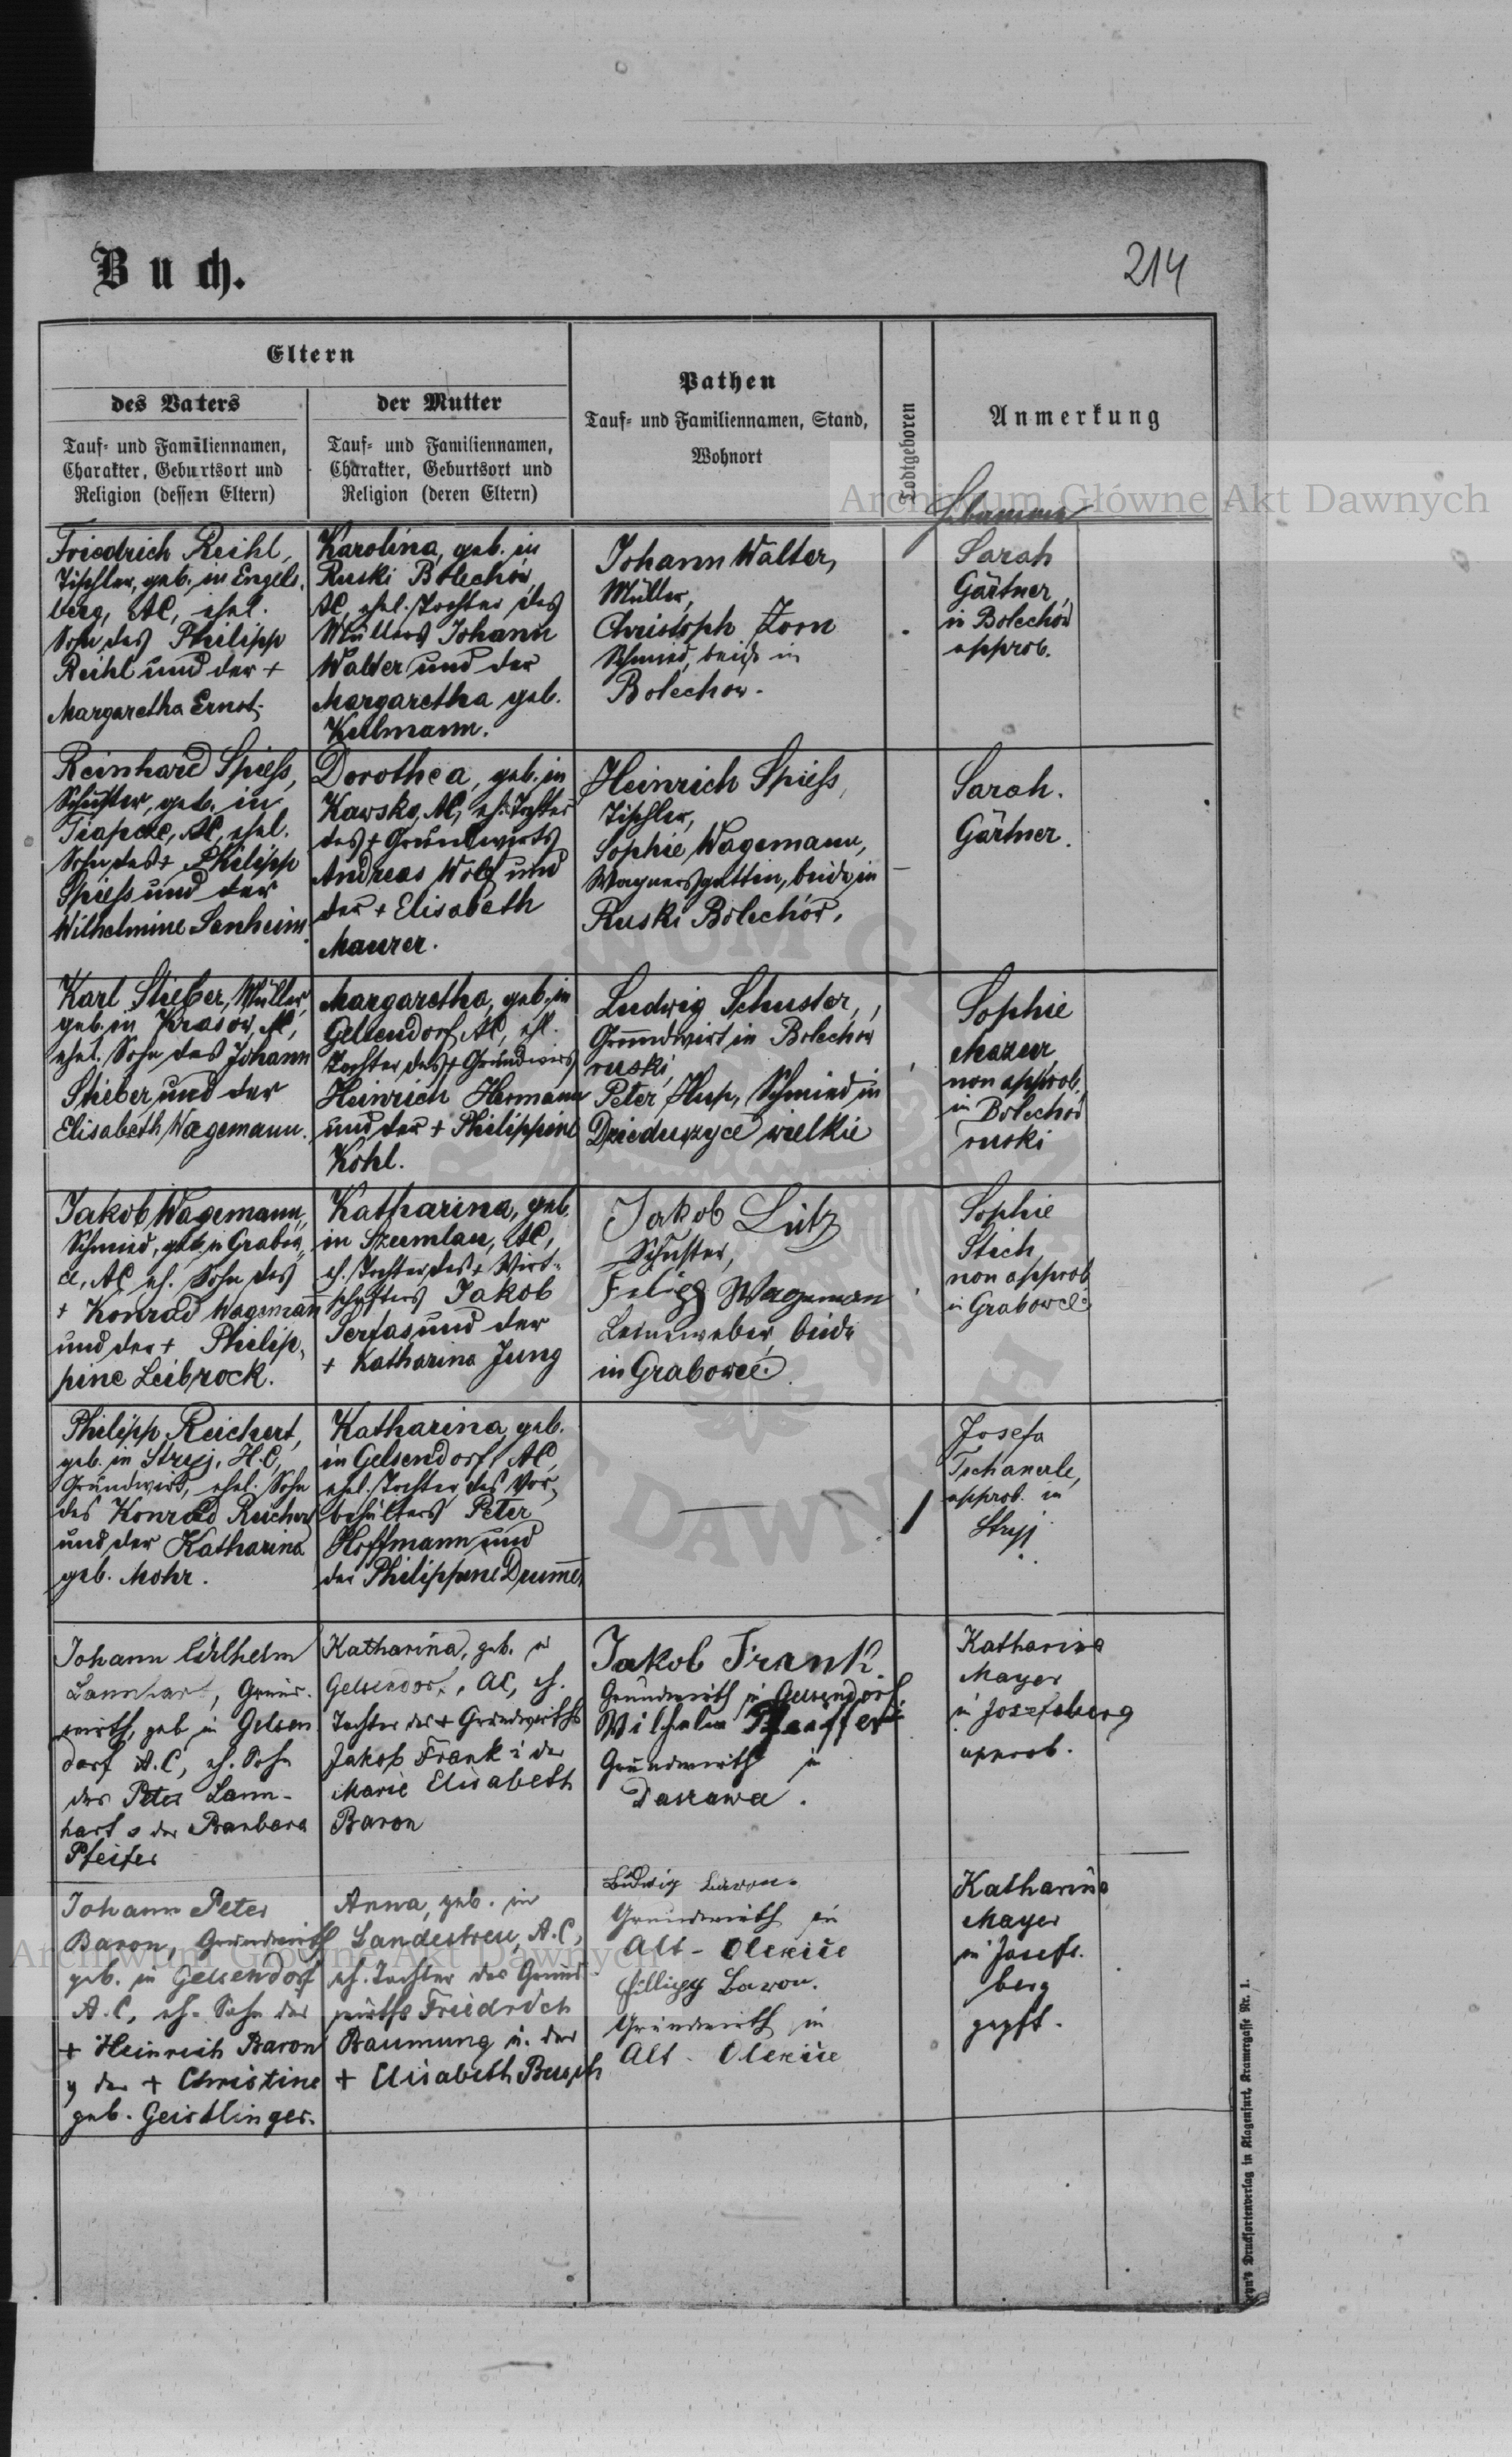 Buch.
214
Eltern
des Vaters
Tauf- und Familiennamen,
Charakter, Geburtsort und
Religion (dessen Eltern)
der Mutter
Tauf- und Familiennamen,
Charakter, Geburtsort und
Religion (deren Eltern)
Pathen
Tauf- und Familiennamen, Stand,
Wohnort
Todtgeboren
Anmerkung
Archiwum Główne Akt Dawnych
Friedrich Reihl,
Tischler, geb. in Engels-
berg, AC, ehel.
Sohn des Philipp
Reihl und der +
Margaretha Ernst.
Karolina, geb. in
Ruski Bolechów,
AC, ehel. Tochter des
Müllers Johann
Walter und der
Margaretha geb.
Kullmann.
Johann Walter,
Müller,
Christoph Zorn
Schmied, beide in
Bolechow.
Sarah
Gärtner,
in Bolechów
approb.
Reinhard Spiess,
Schuster, geb. in
AC, ehel.
Sohn des + Philipp
Spiess und der
Wilhelmine Sanheim.
Dorothea, geb. in
Kawsko, AC, eh. Tochter
des + Grundwirts
Andreas Wolf und
der + Elisabeth
Maurer.
Heinrich Spiess,
Tischler,
Sophie Wagemann,
Wagnersgattin, beide in
Ruski Bolechów.
Sarah.
Gärtner.
Karl Stieber, Müller,
geb. in Krasow, AC,
ehel. Sohn des Johann
Stieber und der
Elisabeth Wagemann.
Margaretha, geb. in
Gelsendorf AC, ehl.
Tochter des + Grundwirts
Heinrich Hermann
und der + Philippine
Kohl.
Ludwig Schuster,
Grundwirt in Bolechow
ruski,
Peter Hup, Schmied in
Dzieduszyce wielkie
Sophie
Mazur
non approb.
in Bolechów
ruski
Jakob Wagemann,
Schmied, geb. in Grabow-
ce, AC eh. Sohn des
+ Konrad Wagemann
und der + Philip-
pine Leibrock.
Katharina, geb.
in Szumlau, AC,
eh. Tochter des + Wirt-
schafters Jakob
Serfas und der
+ Katharina Jung
Jakob Lutz
Schuster,
Filipp Wageman
Leinweber, beide
in Grabowce.
Sophie
Stich
non approb
in Grabowce
Philipp Reichert,
geb. in Stryj, H.C,
Grundwirt, ehel. Sohn
des Konrad Reichert
und der Katharina
geb. Mohr.
Katharina, geb.
in Gelsendorf, AC,
ehel. Tochter des Vor-
behälters Peter
Hoffmann und
der Philippine Drumm
Josefa
Tschanerle,
approb. in
Stryj.
Johann Wilhelm
Lannhart, Grund-
wirth, geb. in Gelsen
dorf A.C, eh. Sohn
des Peter Lann-
hart u der Barbara
Pfeifer
Katharina, geb. in
Gelsendorf, AC, eh.
Tochter des + Grundwirths
Jakob Frank u der
Marie Elisabeth
Baron
Jakob Frank
Grundwirth in Gelsendorf
Wilhelm Pfeiffer
Grundwirth in
Daszawa.
Katharina
Mayer
in Josefsberg
approb.
Johann Peter
Baron, Grundwirth
geb. in Gelsendorf
A.C, eh. Sohn des
+ Heinrich Baron
u der + Christine
geb. Geistlinger.
Anna, geb. in
Landestreu, A.C,
eh. Tochter des Grund-
wirths Friedrich
Baumung u. der
+ Elisabeth Busch
Ludwig Baron.
Grundwirth in
Alt-Oleksice
Fillipp Baron.
Grundwirth in
Alt-Oleksice
Katharina
Mayer
in Josefs-
berg
gepft.
Archiwum Główne Akt Dawnych
Druckfortenverlag in Klagenfurt, Kramergasse Nr. 1.